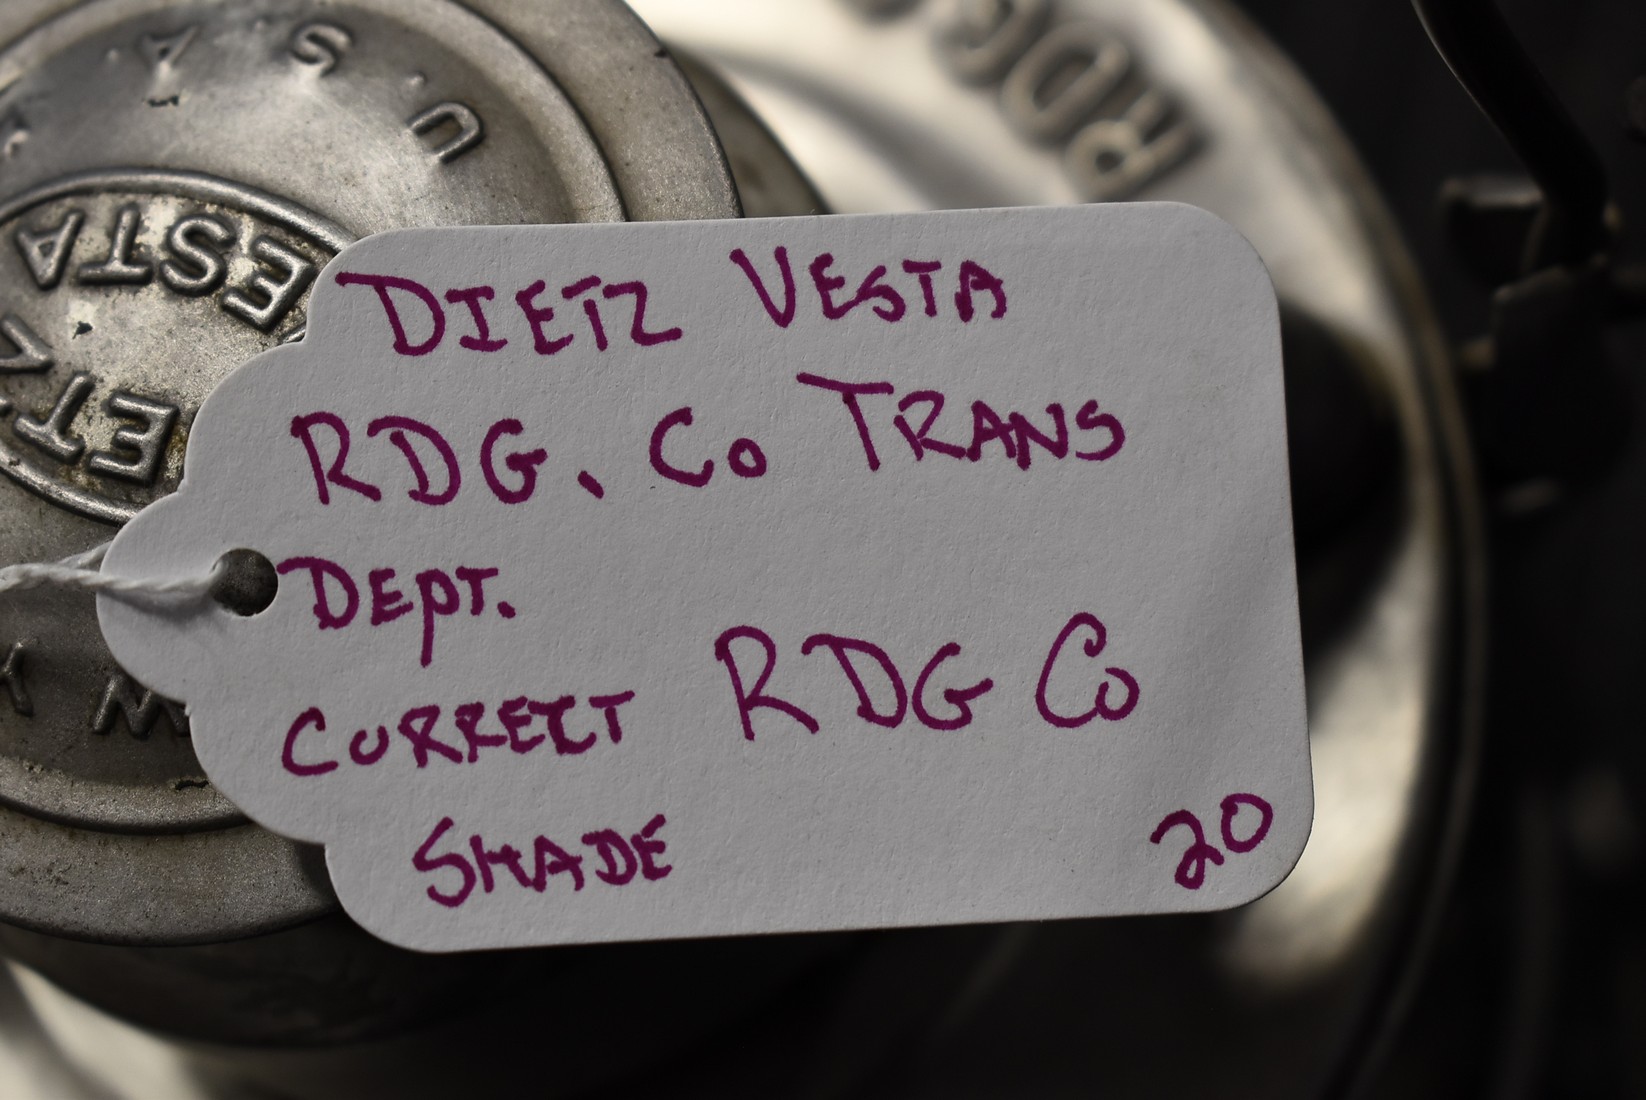 DIETZ VESTA
RDG. Co TRANS
DEPT.
CURRECT RDG Co
SHADE 20
U.S.A.
VESTA
RDG